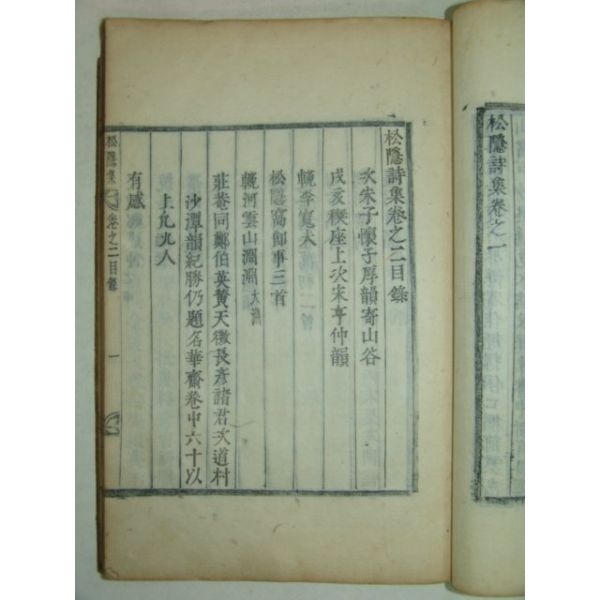 松隱詩集卷之一
松隱詩集卷之二目錄
次朱子懷子厚韻寄山谷
戊亥稧座上次宋亨仲韻
輓李寬夫
松隱窩卽事三首
輓河雲山澗淵
莊菴同鄭伯英贊天徽長彥諸君次道村
沙潭韻紀勝仍題名華齋卷中六十以
上凡九人
有感
松隱集 卷之二目錄 一